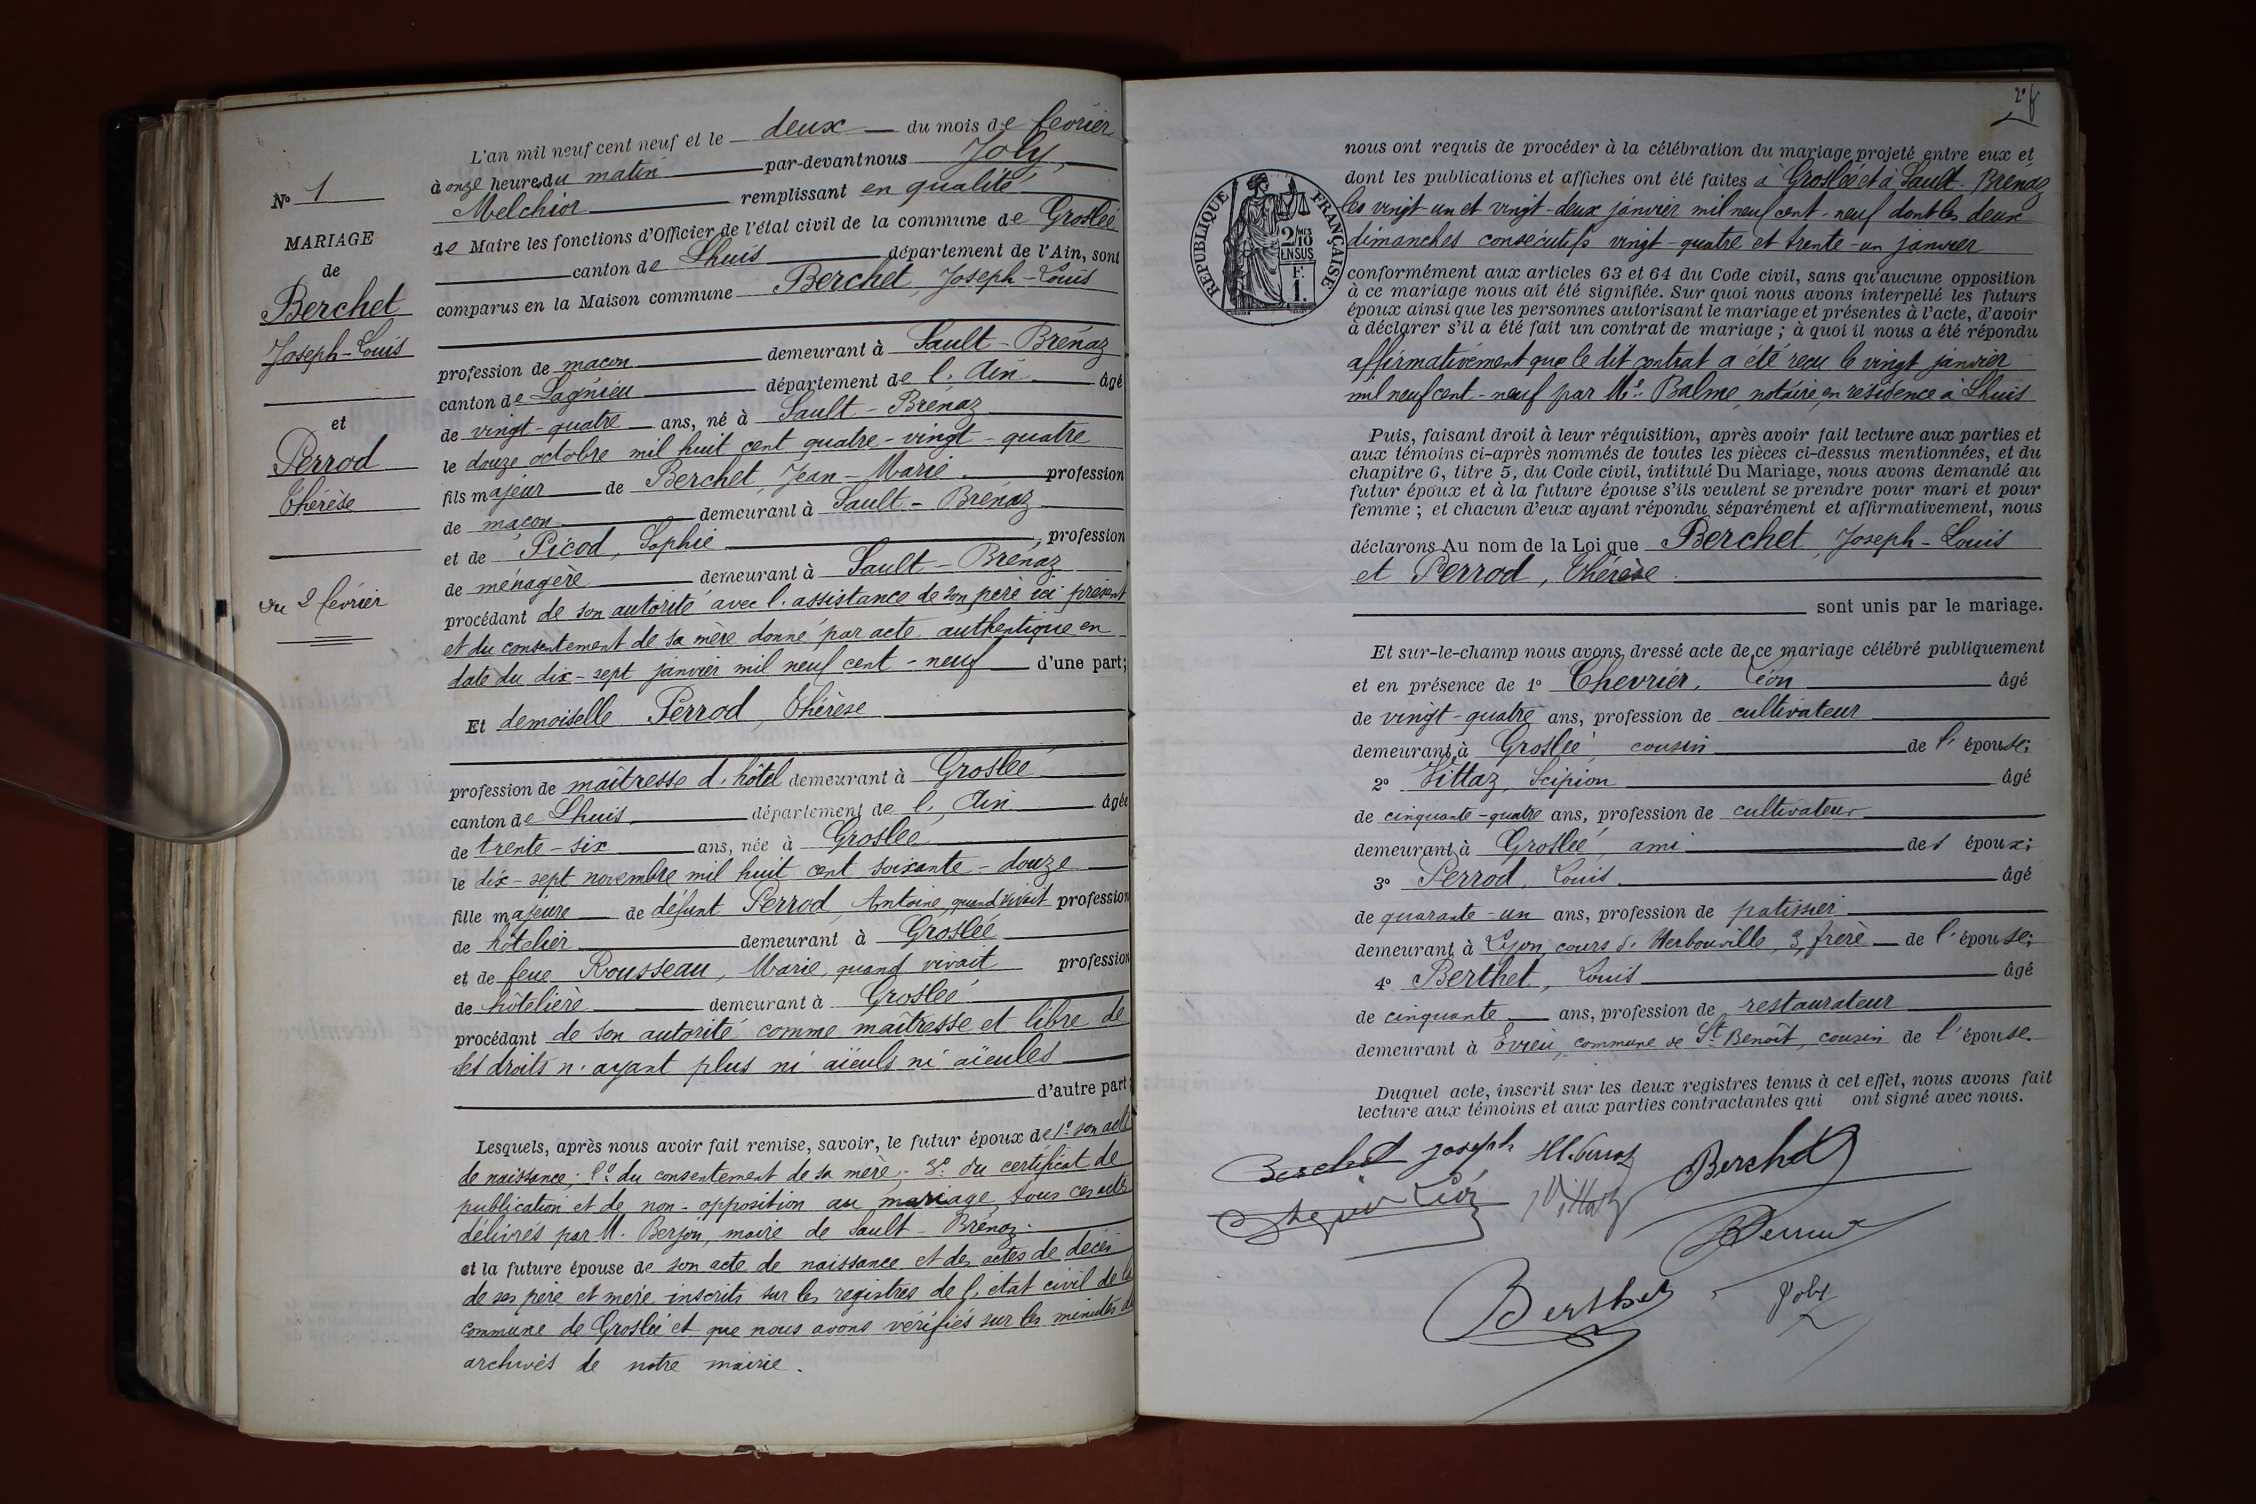 L'an mil neuf cent neuf et le deux du mois de février
à onze heures du matin par-devant nous Joly,
Melchior remplissant en qualité
de Maire les fonctions d'Officier de l'état civil de la commune de Groslée
canton de Lhuis département de l'Ain, sont
comparus en la Maison commune Berchet, Joseph-Louis
profession de maçon demeurant à Sault-Brénaz
canton de Lagnieu département de l'Ain âgé
de vingt-quatre ans, né à Sault-Brénaz
le douze octobre mil huit cent quatre-vingt-quatre
fils majeur de Berchet, Jean-Marie profession
de maçon demeurant à Sault-Brénaz
et de Picod, Sophie, profession
de ménagère demeurant à Sault-Brénaz
procédant de son autorité avec l'assistance de son père ici présent
et du consentement de sa mère donné par acte authentique en
date du dix-sept janvier mil neuf cent-neuf d'une part;
Et demoiselle Perrod, Thérèse
profession de maîtresse d'hôtel demeurant à Groslée
canton de Lhuis département de l'Ain âgée
de trente-six ans, née à Groslée
le dix-sept novembre mil huit cent soixante-douze
fille majeure de défunt Perrod, Antoine, quand vivait profession
de hôtelier demeurant à Groslée
et de feue Rousseau, Marie, quand vivait profession
de hôtelière demeurant à Groslée
procédant de son autorité comme maîtresse et libre de
ses droits n'ayant plus ni aïeuls ni aïeules
d'autre part;
Lesquels, après nous avoir fait remise, savoir, le futur époux de 1º son acte
de naissance; 2º du consentement de sa mère; 3º du certificat de
publication et de non-opposition au mariage, tous ces actes
délivrés par M. Berjon, maire de Sault-Brénaz.
et la future épouse de son acte de naissance et des actes de décès
de ses père et mère inscrits sur les registres de l'état civil de la
commune de Groslée et que nous avons vérifiés sur les minutes des
archives de notre mairie.
Nº 1
MARIAGE
de
Berchet
Joseph-Louis
et
Perrod
Thérèse
Du 2 février
2º
nous ont requis de procéder à la célébration du mariage projeté entre eux et
dont les publications et affiches ont été faites à Groslée et à Sault-Brénaz
les vingt-un et vingt-deux janvier mil neuf cent-neuf dont les deux
dimanches consécutifs vingt-quatre et trente-un janvier
conformément aux articles 63 et 64 du Code civil, sans qu'aucune opposition
à ce mariage nous ait été signifiée. Sur quoi nous avons interpellé les futurs
époux ainsi que les personnes autorisant le mariage et présentes à l'acte, d'avoir
à déclarer s'il a été fait un contrat de mariage; à quoi il nous a été répondu
affirmativement que le dit contrat a été reçu le vingt janvier
mil neuf cent-neuf par Me. Balme, notaire, en résidence à Lhuis
Puis, faisant droit à leur réquisition, après avoir fait lecture aux parties et
aux témoins ci-après nommés de toutes les pièces ci-dessus mentionnées, et du
chapitre 6, titre 5, du Code civil, intitulé Du Mariage, nous avons demandé au
futur époux et à la future épouse s'ils veulent se prendre pour mari et pour
femme; et chacun d'eux ayant répondu séparément et affirmativement, nous
déclarons Au nom de la Loi que Berchet, Joseph-Louis
et Perrod, Thérèse
sont unis par le mariage.
Et sur-le-champ nous avons dressé acte de ce mariage célébré publiquement
et en présence de 1º Chevrier, Léon âgé
de vingt-quatre ans, profession de cultivateur
demeurant à Groslée cousin de l'épouse;
2º Vittaz, Scipion âgé
de cinquante-quatre ans, profession de cultivateur
demeurant à Groslée, ami des époux;
3º Perrod, Louis âgé
de quarante-un ans, profession de patissier
demeurant à Lyon, cours d'Herbouville, 3, frère de l'épouse;
4º Berthet, Louis âgé
de cinquante ans, profession de restaurateur
demeurant à Evieu, commune de St Benoît, cousin de l'épouse.
Duquel acte, inscrit sur les deux registres tenus à cet effet, nous avons fait
lecture aux témoins et aux parties contractantes qui ont signé avec nous.
Berchet joseph Berchet
Léon Vittaz
Berthet Joly
RÉPUBLIQUE FRANÇAISE
2/10
EN SUS
F.
1.